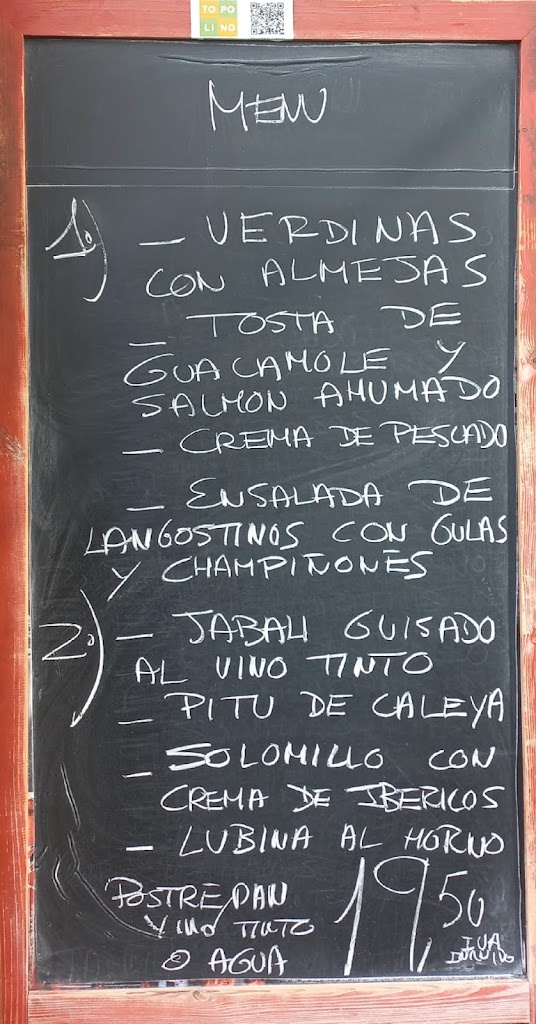 TO PO
LI NO
MENU
1º)
- VERDINAS
CON ALMEJAS
- TOSTA DE
GUACAMOLE Y
SALMON AHUMADO
- CREMA DE PESCADO
- ENSALADA DE
LANGOSTINOS CON GULAS
Y CHAMPIÑONES
2º)
- JABALI GUISADO
AL VINO TINTO
- PITU DE CALEYA
- SOLOMILLO CON
CREMA DE IBERICOS
- LUBINA AL HORNO
POSTRE, PAN
VINO TINTO
O AGUA
19,50
IVA
INCLUIDO